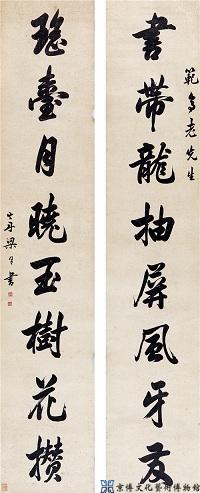 範老先生
書帶龍抽屏風牙發
瑤臺月曉玉樹花攢
山舟梁同書
京博文化藝術博物館